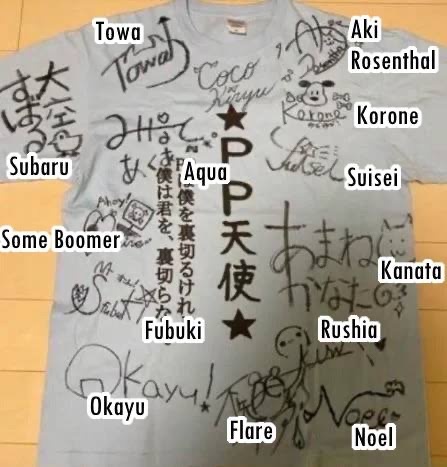 Towa
Towa
Coco
Kiryu
Aki
Rosenthal
Aki
Rosenthal
大空
すばる
Subaru
Korone
Korone
Suisei
Suisei
みなと
あくあ
Aqua
★PP天使★
僕を裏切るけれ
僕は君を、裏切らな
Ahoy!
Some Boomer
あまね
かなた
Kanata
Fubuki
Rushia
Okayu!
Okayu
Flare
Noel
Noel